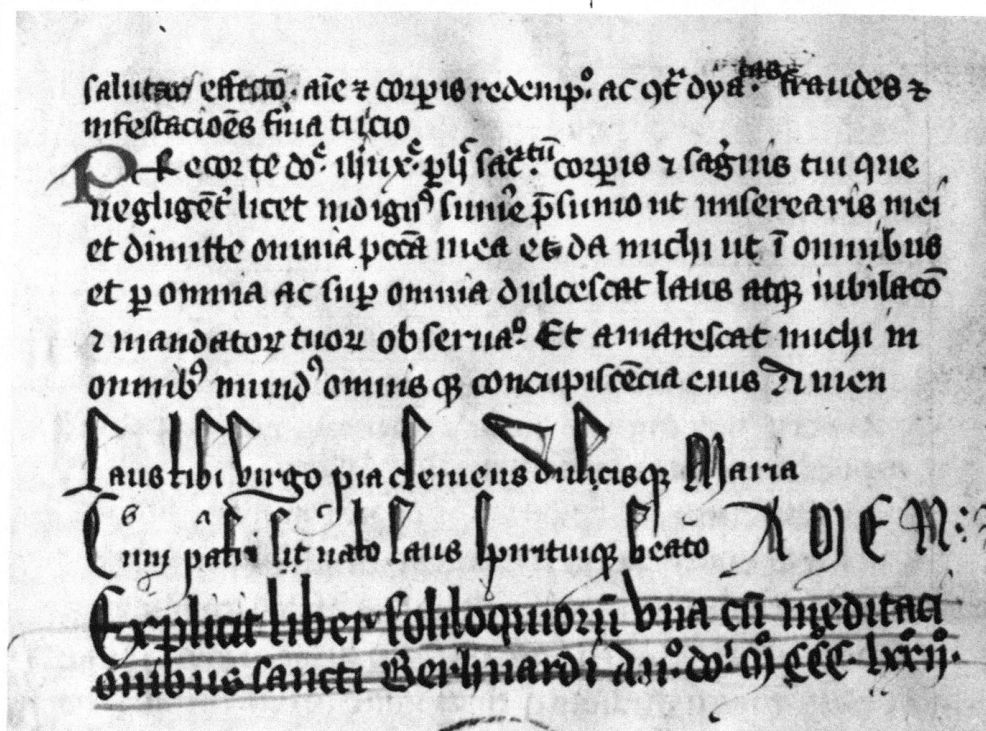 salutare effectu. aīe ⁊ corpis redemp°. ac ꝯt dya. tas fraudes ⁊
infestacioēs firma tuicio
Precor te do ihu xe. p sac tu corpis ⁊ sāguis tui que
negligēt licet indignꝰ sumē p̄sumo ut miserearis mei
et dimitte omnia pccā mea et da michi ut ī omnibus
et ꝑ omnia ac suꝑ omnia dulcescat laus atqꝫ iubilacō
⁊ mandatoꝝ tuoꝝ obserua°. Et amarescat michi in
omnibꝰ mundꝰ omnis qꝫ concupiscēcia eius Amen
Laus tibi virgo pia clemens dulcisqꝫ Maria
Cum patri sit nato laus spirituiqꝫ beato AMEN:
Explicit liber soliloquiorū vna cū meditaci
onibus sancti Bernhardi Anº. doⁱ. Mº CCCº. lxxijº.